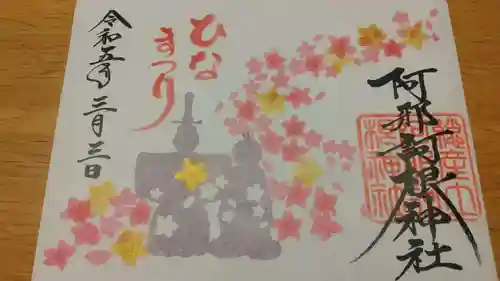 阿那訶根神社
ひな
まつり
令和五年
三月三日